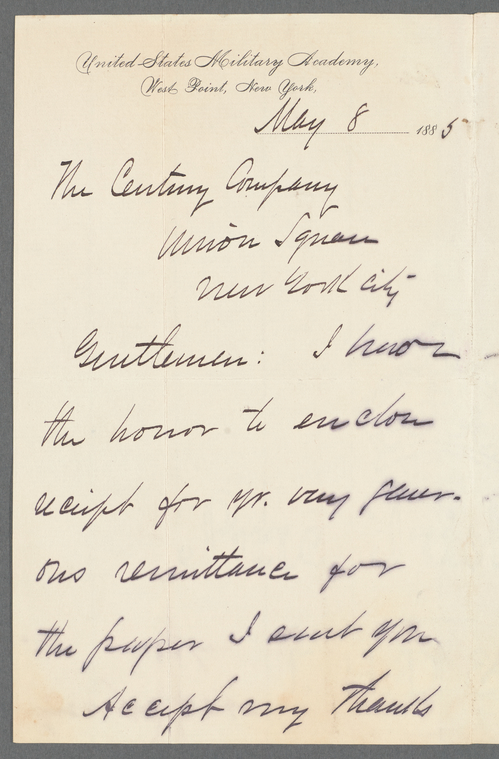 United States Military Academy,
West Point, New York,
May 8 1885
The Century Company
Union Square
New York City
Gentlemen: I have
the honor to enclose
receipt for yr. very gener-
ous remittance for
the paper I sent you
Accept my thanks